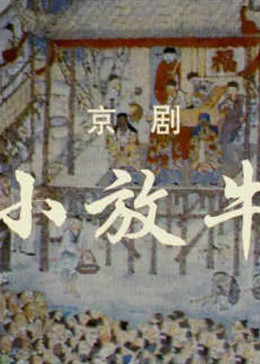 福
京剧
小放牛